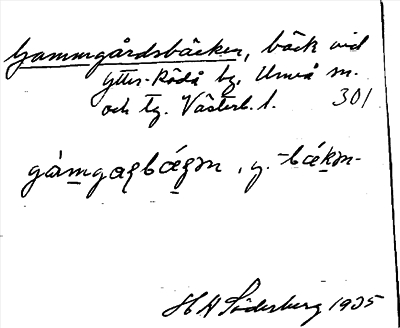 Gammgårdsbäcken, bäck vid
Ytter-Rödå by, Umeå sn.
och tg. Västerb. l. 301
H A Söderberg 1935